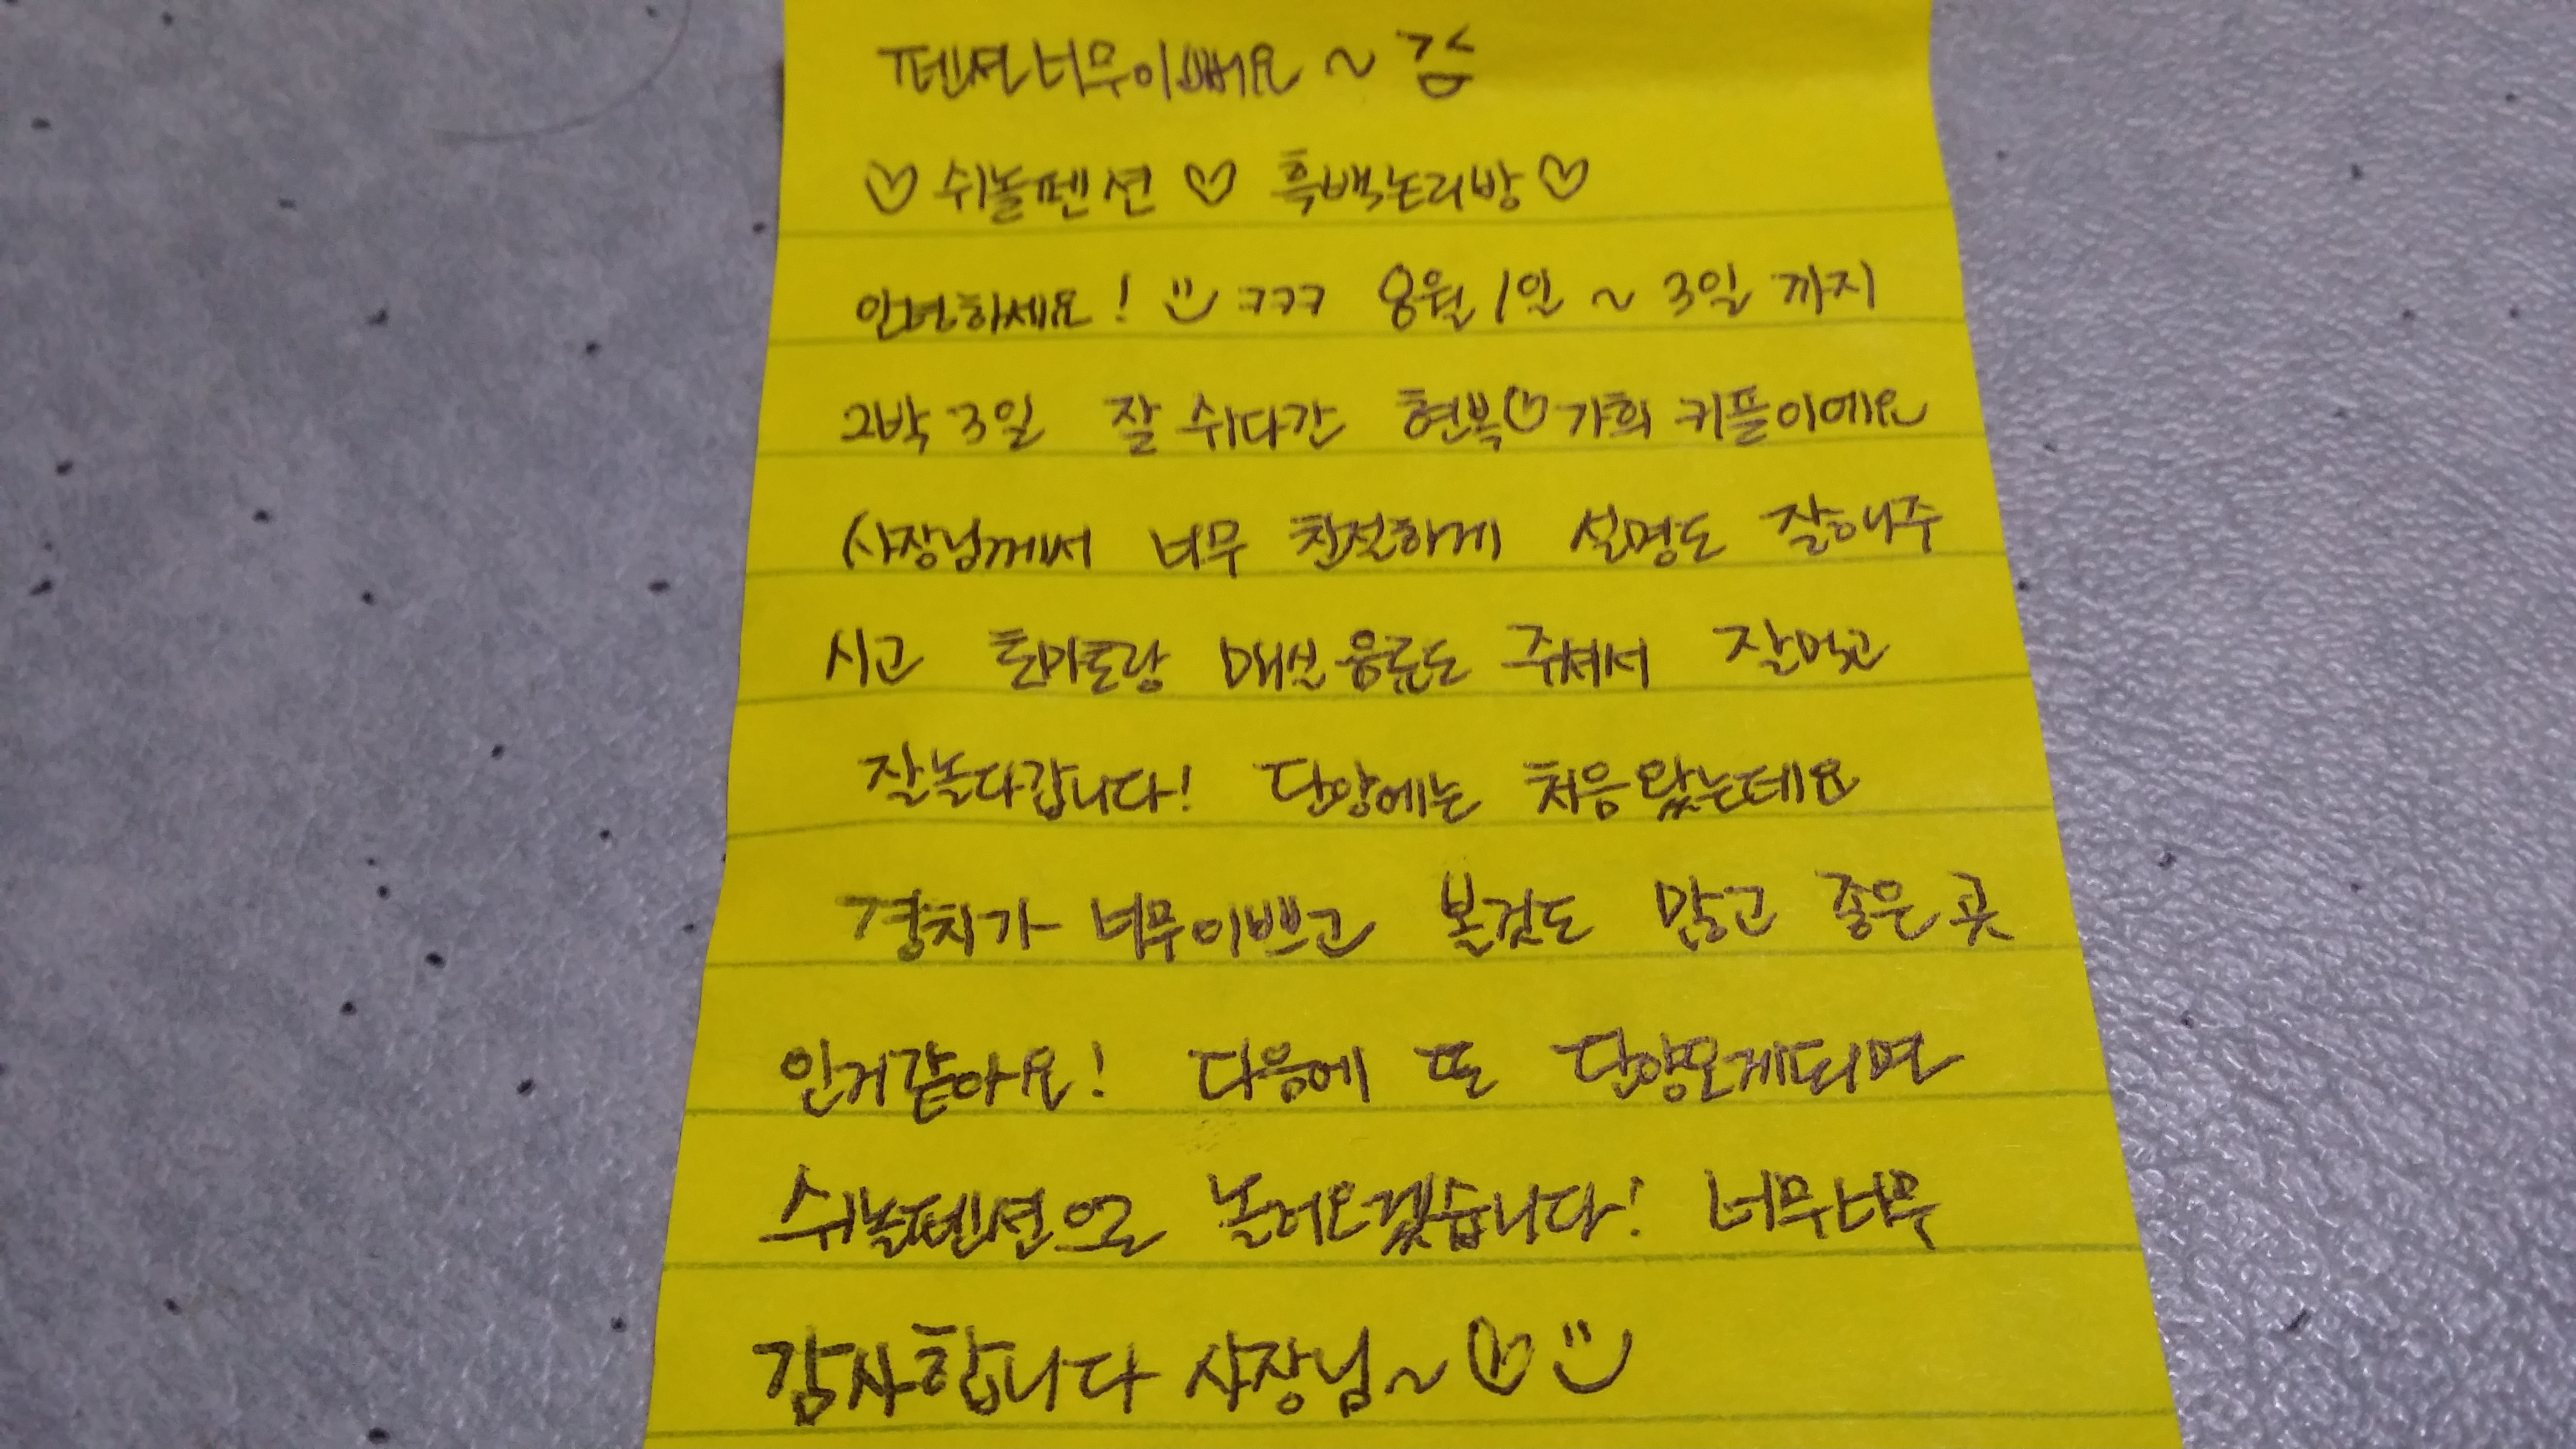 펜션너무이뻐요~
♡쉬놀펜션♡ 흑백논리방♡
안녕하세요! ㅋㅋㅋ 8월 1일 ~ 3일 까지
2박 3일 잘 쉬다간 현복♡가희 커플이에요
사장님께서 너무 친절하게 설명도 잘해주
시고 토마토랑 매실음료도 주셔서 잘먹고
잘놀다갑니다! 단양에는 처음왔는데요
경치가 너무이쁘고 볼것도 많고 좋은곳
인거같아요! 다음에 또 단양오게되면
쉬놀펜션으로 놀러오겠습니다! 너무너무
감사합니다 사장님~♡